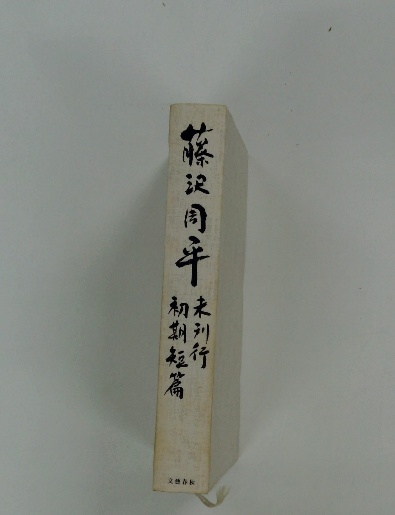 藤沢周平
未刊行
初期短篇
文藝春秋